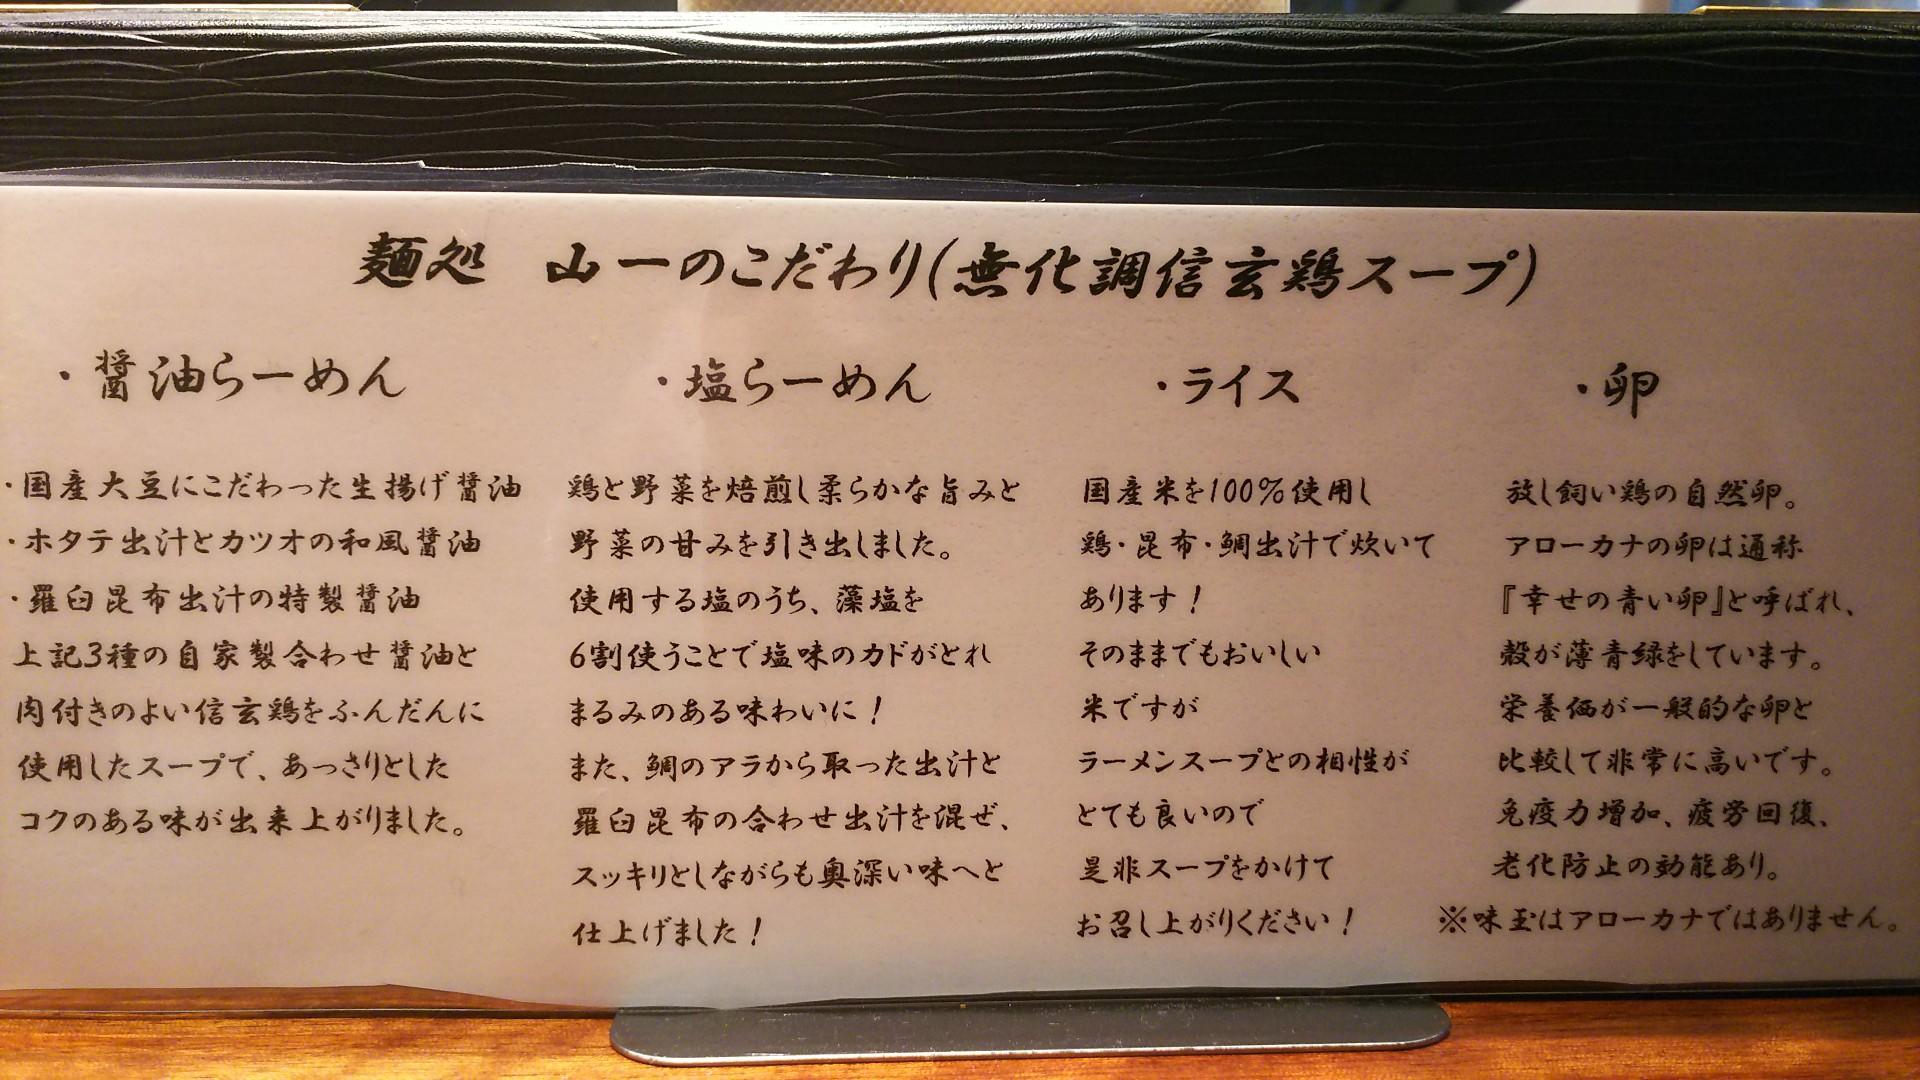 麺処　山一のこだわり(無化調信玄鶏スープ)
・醤油らーめん
・国産大豆にこだわった生揚げ醤油
・ホタテ出汁とカツオの和風醤油
・羅臼昆布出汁の特製醤油
上記3種の自家製合わせ醤油と
肉付きのよい信玄鶏をふんだんに
使用したスープで、あっさりとした
コクのある味が出来上がりました。
・塩らーめん
鶏と野菜を焙煎し柔らかな旨みと
野菜の甘みを引き出しました。
使用する塩のうち、藻塩を
6割使うことで塩味のカドがとれ
まるみのある味わいに！
また、鯛のアラから取った出汁と
羅臼昆布の合わせ出汁を混ぜ、
スッキリとしながらも奥深い味へと
仕上げました！
・ライス
国産米を100％使用し
鶏・昆布・鯛出汁で炊いて
あります！
そのままでもおいしい
米ですが
ラーメンスープとの相性が
とても良いので
是非スープをかけて
お召し上がりください！
・卵
放し飼い鶏の自然卵。
アローカナの卵は通称
『幸せの青い卵』と呼ばれ、
殻が薄青緑をしています。
栄養価が一般的な卵と
比較して非常に高いです。
免疫力増加、疲労回復、
老化防止の効能あり。
※味玉はアローカナではありません。